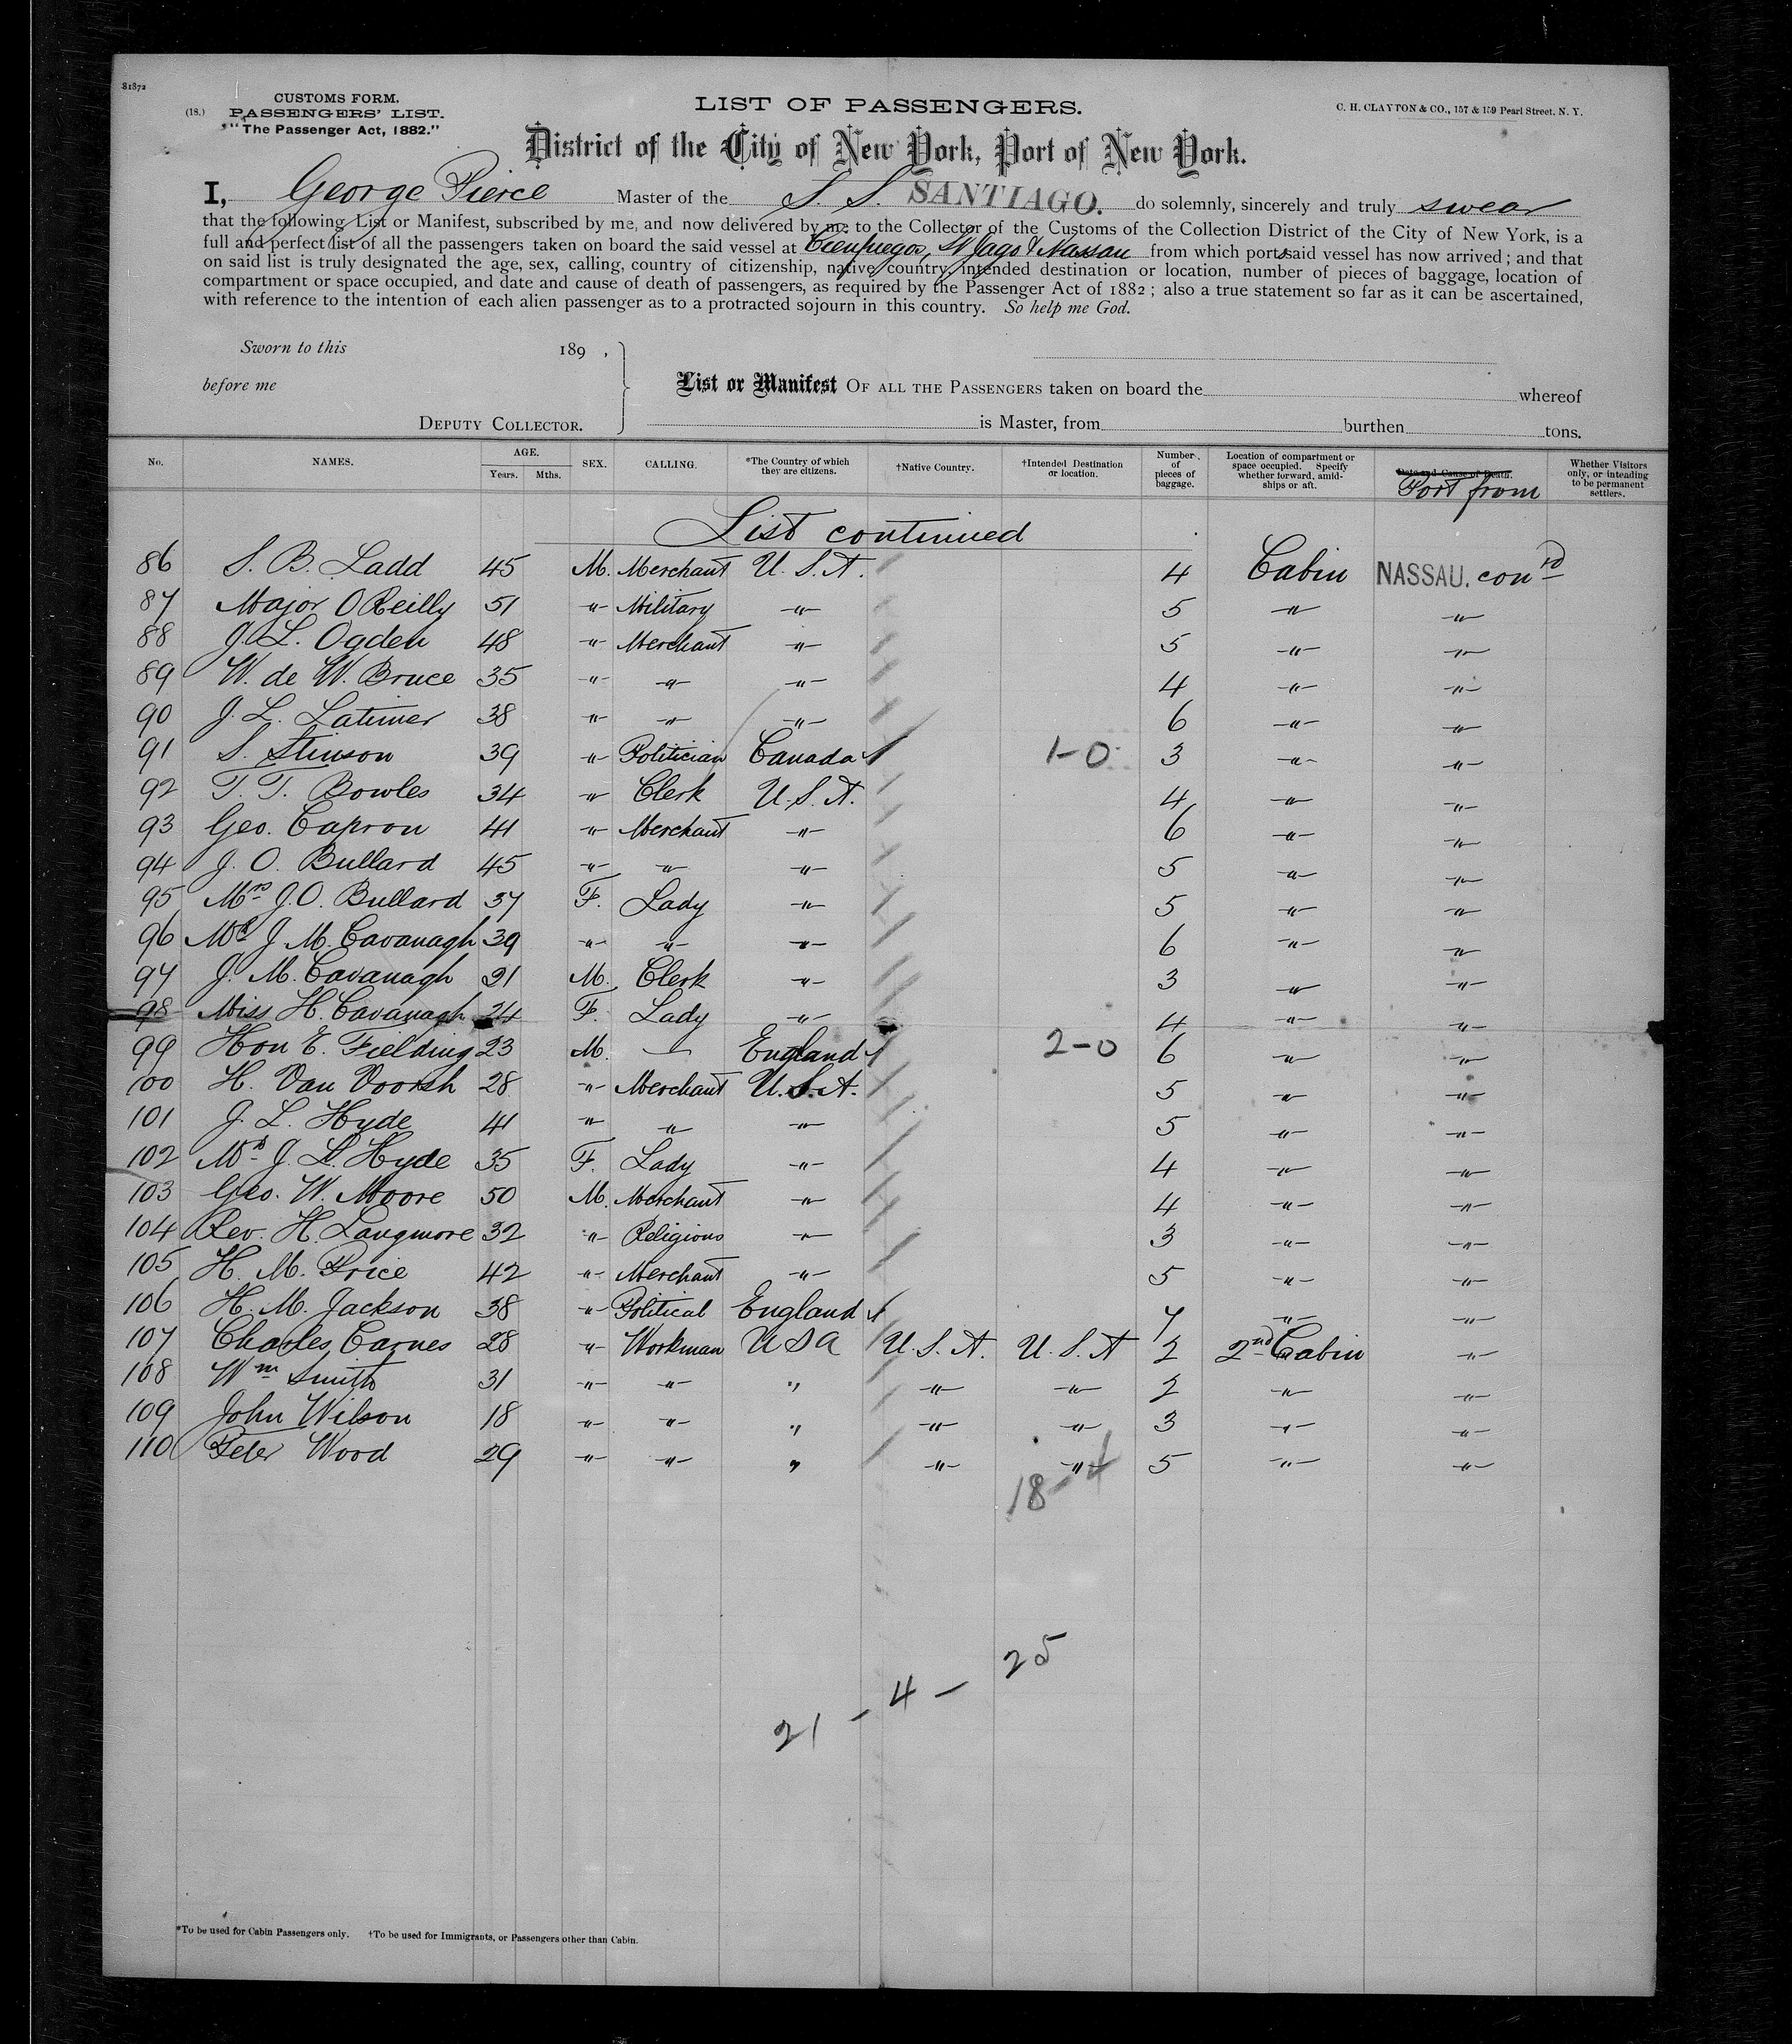 81872
CUSTOMS FORM.
(18.) PASSENGERS' LIST.
"The Passenger Act, 1882."
LIST OF PASSENGERS.
C. H. CLAYTON & CO., 157 & 159 Pearl Street, N. Y.
District of the City of New York, Port of New York.
I, George Pierce Master of the S. S. SANTIAGO. do solemnly, sincerely and truly swear
that the following List or Manifest, subscribed by me, and now delivered by me to the Collector of the Customs of the Collection District of the City of New York, is a
full and perfect list of all the passengers taken on board the said vessel at Cienfuegos, St Jago & Nassau from which ports said vessel has now arrived; and that
on said list is truly designated the age, sex, calling, country of citizenship, native country, intended destination or location, number of pieces of baggage, location of
compartment or space occupied, and date and cause of death of passengers, as required by the Passenger Act of 1882; also a true statement so far as it can be ascertained,
with reference to the intention of each alien passenger as to a protracted sojourn in this country. So help me God.
Sworn to this 189 ,
before me
DEPUTY COLLECTOR.
List or Manifest OF ALL THE PASSENGERS taken on board the whereof
is Master, from burthen tons.
No. NAMES. AGE. Years. Mths. SEX. CALLING. *The Country of which they are citizens. †Native Country. †Intended Destination or location. Number of pieces of baggage. Location of compartment or space occupied. Specify whether forward, amidships or aft. Date and Cause of Death. Port from Whether Visitors only, or intending to be permanent settlers.
List continued
86 S. B. Ladd 45 M. Merchant U. S. A. 4 Cabin NASSAU. con
87 Major O Reilly 51 " Military " 5 " "
88 J. L. Ogden 48 " Merchant " 5 " "
89 W. de W. Bruce 35 " " " 4 " "
90 J. L. Latimer 38 " " " 6 " "
91 S. Stinson 39 " Politician Canada 1-0 3 " "
92 T. T. Bowles 34 " Clerk U. S. A. 4 " "
93 Geo. Capron 41 " Merchant " 6 " "
94 J. O. Bullard 45 " " " 5 " "
95 Mrs J. O. Bullard 37 F. Lady " 5 " "
96 Mrs J. M. Cavanagh 39 " " " 6 " "
97 J. M. Cavanagh 21 M. Clerk " 3 " "
98 Miss H. Cavanagh 24 F. Lady " 4 " "
99 Hon E. Fielding 23 M. — England 2-0 6 " "
100 H. Van Voorsh 28 " Merchant U. S. A. 5 " "
101 J. L. Hyde 41 " " " 5 " "
102 Mrs J. L. Hyde 35 F. Lady " 4 " "
103 Geo. W. Moore 50 M. Merchant " 4 " "
104 Rev. H. Langmore 32 " Religious " 3 " "
105 H. M. Price 42 " Merchant " 5 " "
106 H. M. Jackson 38 " Political England 7 " "
107 Charles Carnes 28 " Workman U S A U. S. A. U. S. A 2 2nd Cabin "
108 Wm Smith 31 " " " " " 2 " "
109 John Wilson 18 " " " " " 3 " "
110 Peter Wood 29 " " " " " 5 " "
18-4
21 - 4 - 25
*To be used for Cabin Passengers only. †To be used for Immigrants, or Passengers other than Cabin.